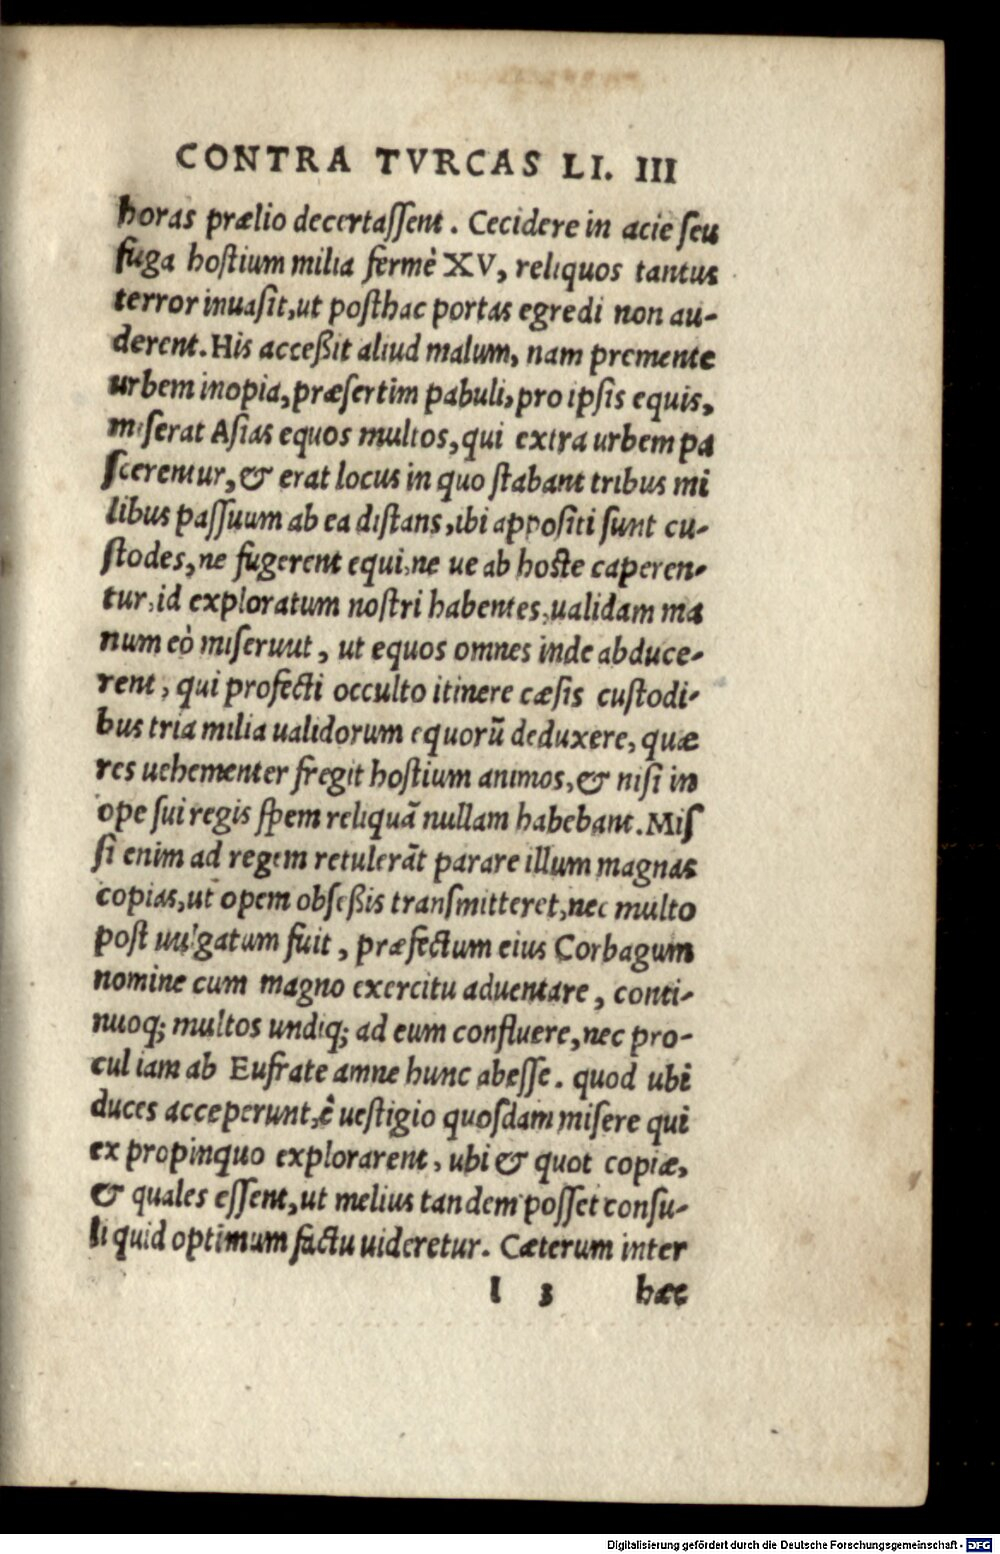 CONTRA TVRCAS LI. III
horas prælio decertaſſent. Cecidere in acie ſeu
fuga hoſtium milia fermè XV, reliquos tantus
terror inuaſit, ut poſthac portas egredi non au-
derent. His acceßit aliud malum, nam premente
urbem inopia, præſertim pabuli, pro ipſis equis,
miſerat Aſias equos multos, qui extra urbem pa
ſcerentur, & erat locus in quo ſtabant tribus mi
libus paſſuum ab ea diſtans, ibi appoſiti ſunt cu-
ſtodes, ne fugerent equi, ne ue ab hoſte caperen-
tur, id exploratum noſtri habentes, ualidam ma
num eò miſeruut, ut equos omnes inde abduce-
rent, qui profecti occulto itinere cæſis cuſtodi-
bus tria milia ualidorum equorũ deduxere, quæ
res uehementer fregit hoſtium animos, & niſi in
ope ſui regis ſpem reliquã nullam habebant. Miſ
ſi enim ad regem retulerãt parare illum magnas
copias, ut opem obſeßis tranſmitteret, nec multo
poſt uulgatum fuit, præfectum eius Corbagum
nomine cum magno exercitu aduentare, conti-
nuoq; multos undiq; ad eum confluere, nec pro-
cul iam ab Eufrate amne hunc abeſſe. quod ubi
duces acceperunt, è ueſtigio quoſdam miſere qui
ex propinquo explorarent, ubi & quot copiæ,
& quales eſſent, ut melius tandem poſſet conſu-
li quid optimum factu uideretur. Cæterum inter
l 3 hæc
Digitalisierung gefördert durch die Deutsche Forschungsgemeinschaft - DFG